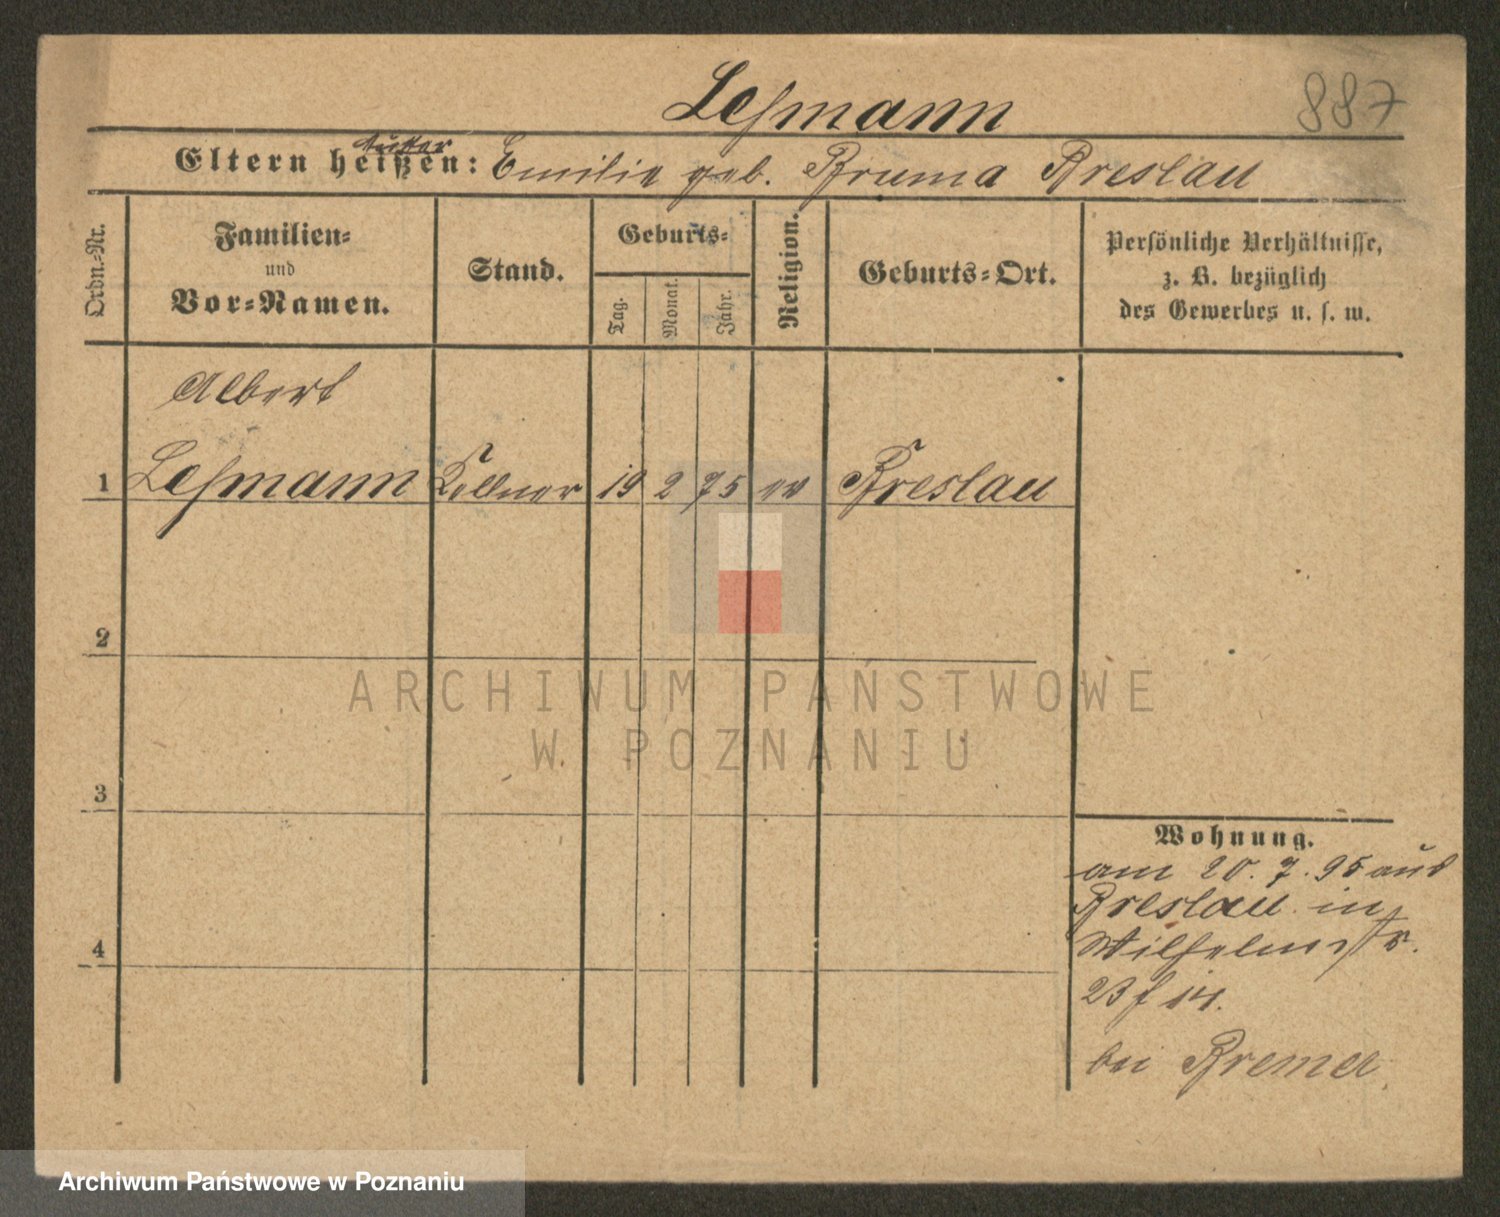 Lehmann
887
Mutter
Eltern heißen: Emilie geb. Bruma Breslau
Ordn.-Nr.
Familien-
und
Vor-Namen.
Stand.
Geburts-
Tag.
Monat.
Jahr.
Religion.
Geburts-Ort.
Persönliche Verhältnisse,
z. B. bezüglich
des Gewerbes u. s. w.
Albert
1 Lehmann Kellner 19 2 75 ev Breslau
2
3
4
Wohnung.
am 20. 7. 95 aus
Breslau in
Wilhelmstr.
23 f 14.
bei Bremer
ARCHIWUM PAŃSTWOWE
W POZNANIU
Archiwum Państwowe w Poznaniu